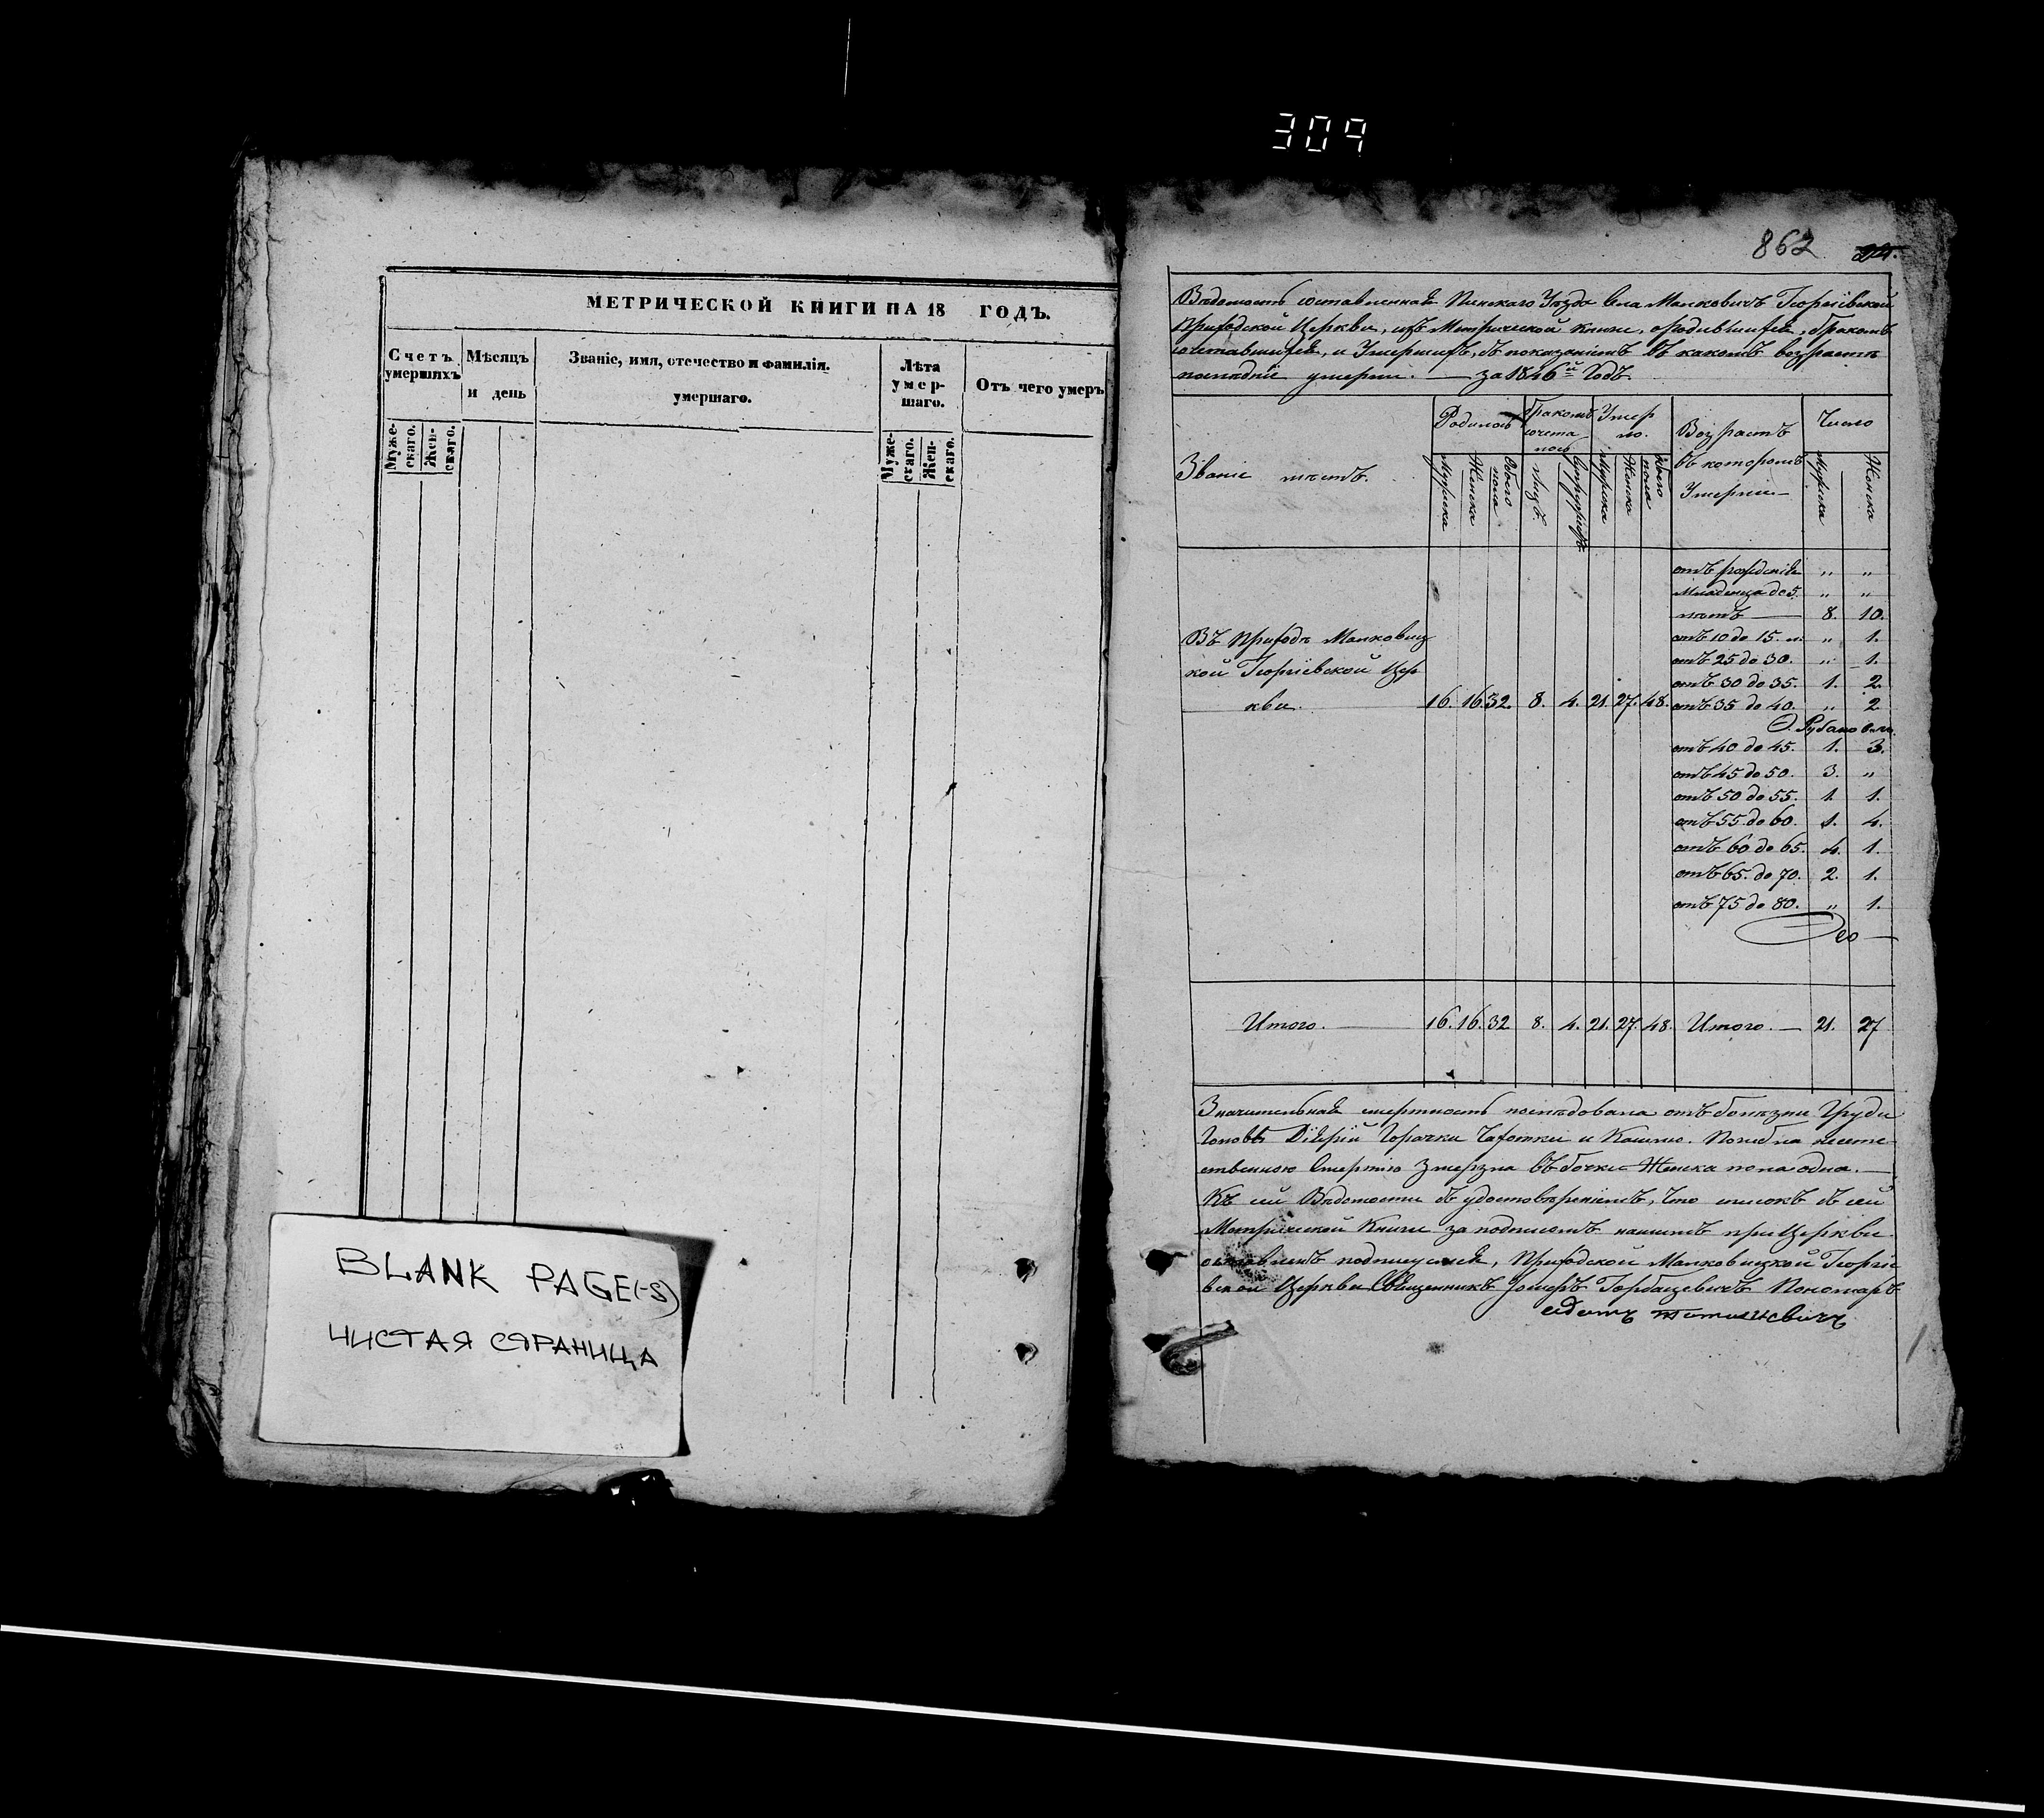 309
МЕТРИЧЕСКОЙ КНИГИ НА 18 ГОДЪ.
Счетъ умершихъ
Мѣсяцъ и день
Званіе, имя, отечество и фамилія.
умершаго.
Лѣта умер-шаго.
Отъ чего умеръ
Муже-скаго.
Жен-скаго.
Муже-скаго.
Жен-скаго.
BLANK PAGE(-S)
ЧИСТАЯ СТРАНИЦА
862
Вѣдомость составленная Пинскаго Уѣзда Села Малковичъ Георгіевской
Приходской Церкви, изъ Метрической книги, о родившихся, бракомъ
сочетавшихся, и Умершихъ, съ показаніемъ въ какомъ возрастѣ
послѣдніе умерли. — за 1846й Годъ.
Званіе мѣстъ.
Родилось
Бракомъ сочета лось
Умер ло.
Возрастъ
въ которомъ
Умерли —
Число
Мужеска
Женска
Обоего пола
лицъ.
Супружествъ
Мужеска
Женска
Обоего пола
Мужеска
Женска
отъ рожденія „ „
Младенца до 5. „ „
лѣтъ — 8. 10.
отъ 10 до 15. л. „ 1.
отъ 25 до 30. „ 1.
отъ 30 до 35. 1. 2.
Въ Приходѣ Малковиц
кой Георгіевской Цер
кви. 16. 16 32. 8. 4. 21. 27. 48. отъ 35 до 40. „ 2
отъ 40 до 45. 1. 3.
отъ 45 до 50. 3. „
отъ 50 до 55. 1. 1.
отъ 55. до 60. 1. 4.
отъ 60 до 65. 4. 1.
отъ 65. до 70. 2. 1.
отъ 75 до 80. „ 1.
Итого. — 16. 16. 32 8. 4. 21. 27. 48. Итого. — 21. 27
Значительная смертность послѣдовала отъ болѣзни Груди
Головы Діаріи Горячки Сухотки и Кашлю. Погибла неесте-
ственною Смертію Змерзла въ бочки Женска пола одна. —
Къ сей Вѣдомости съ удостовѣреніемъ, что списокъ съ сей
Метрической Книги за подписомъ нашимъ при Церкви
оставленъ подписуемся, Приходской Малковицкой Георгіе
вской Церкви Священникъ Іосифъ Горбацевичъ Пономарь
Адамъ